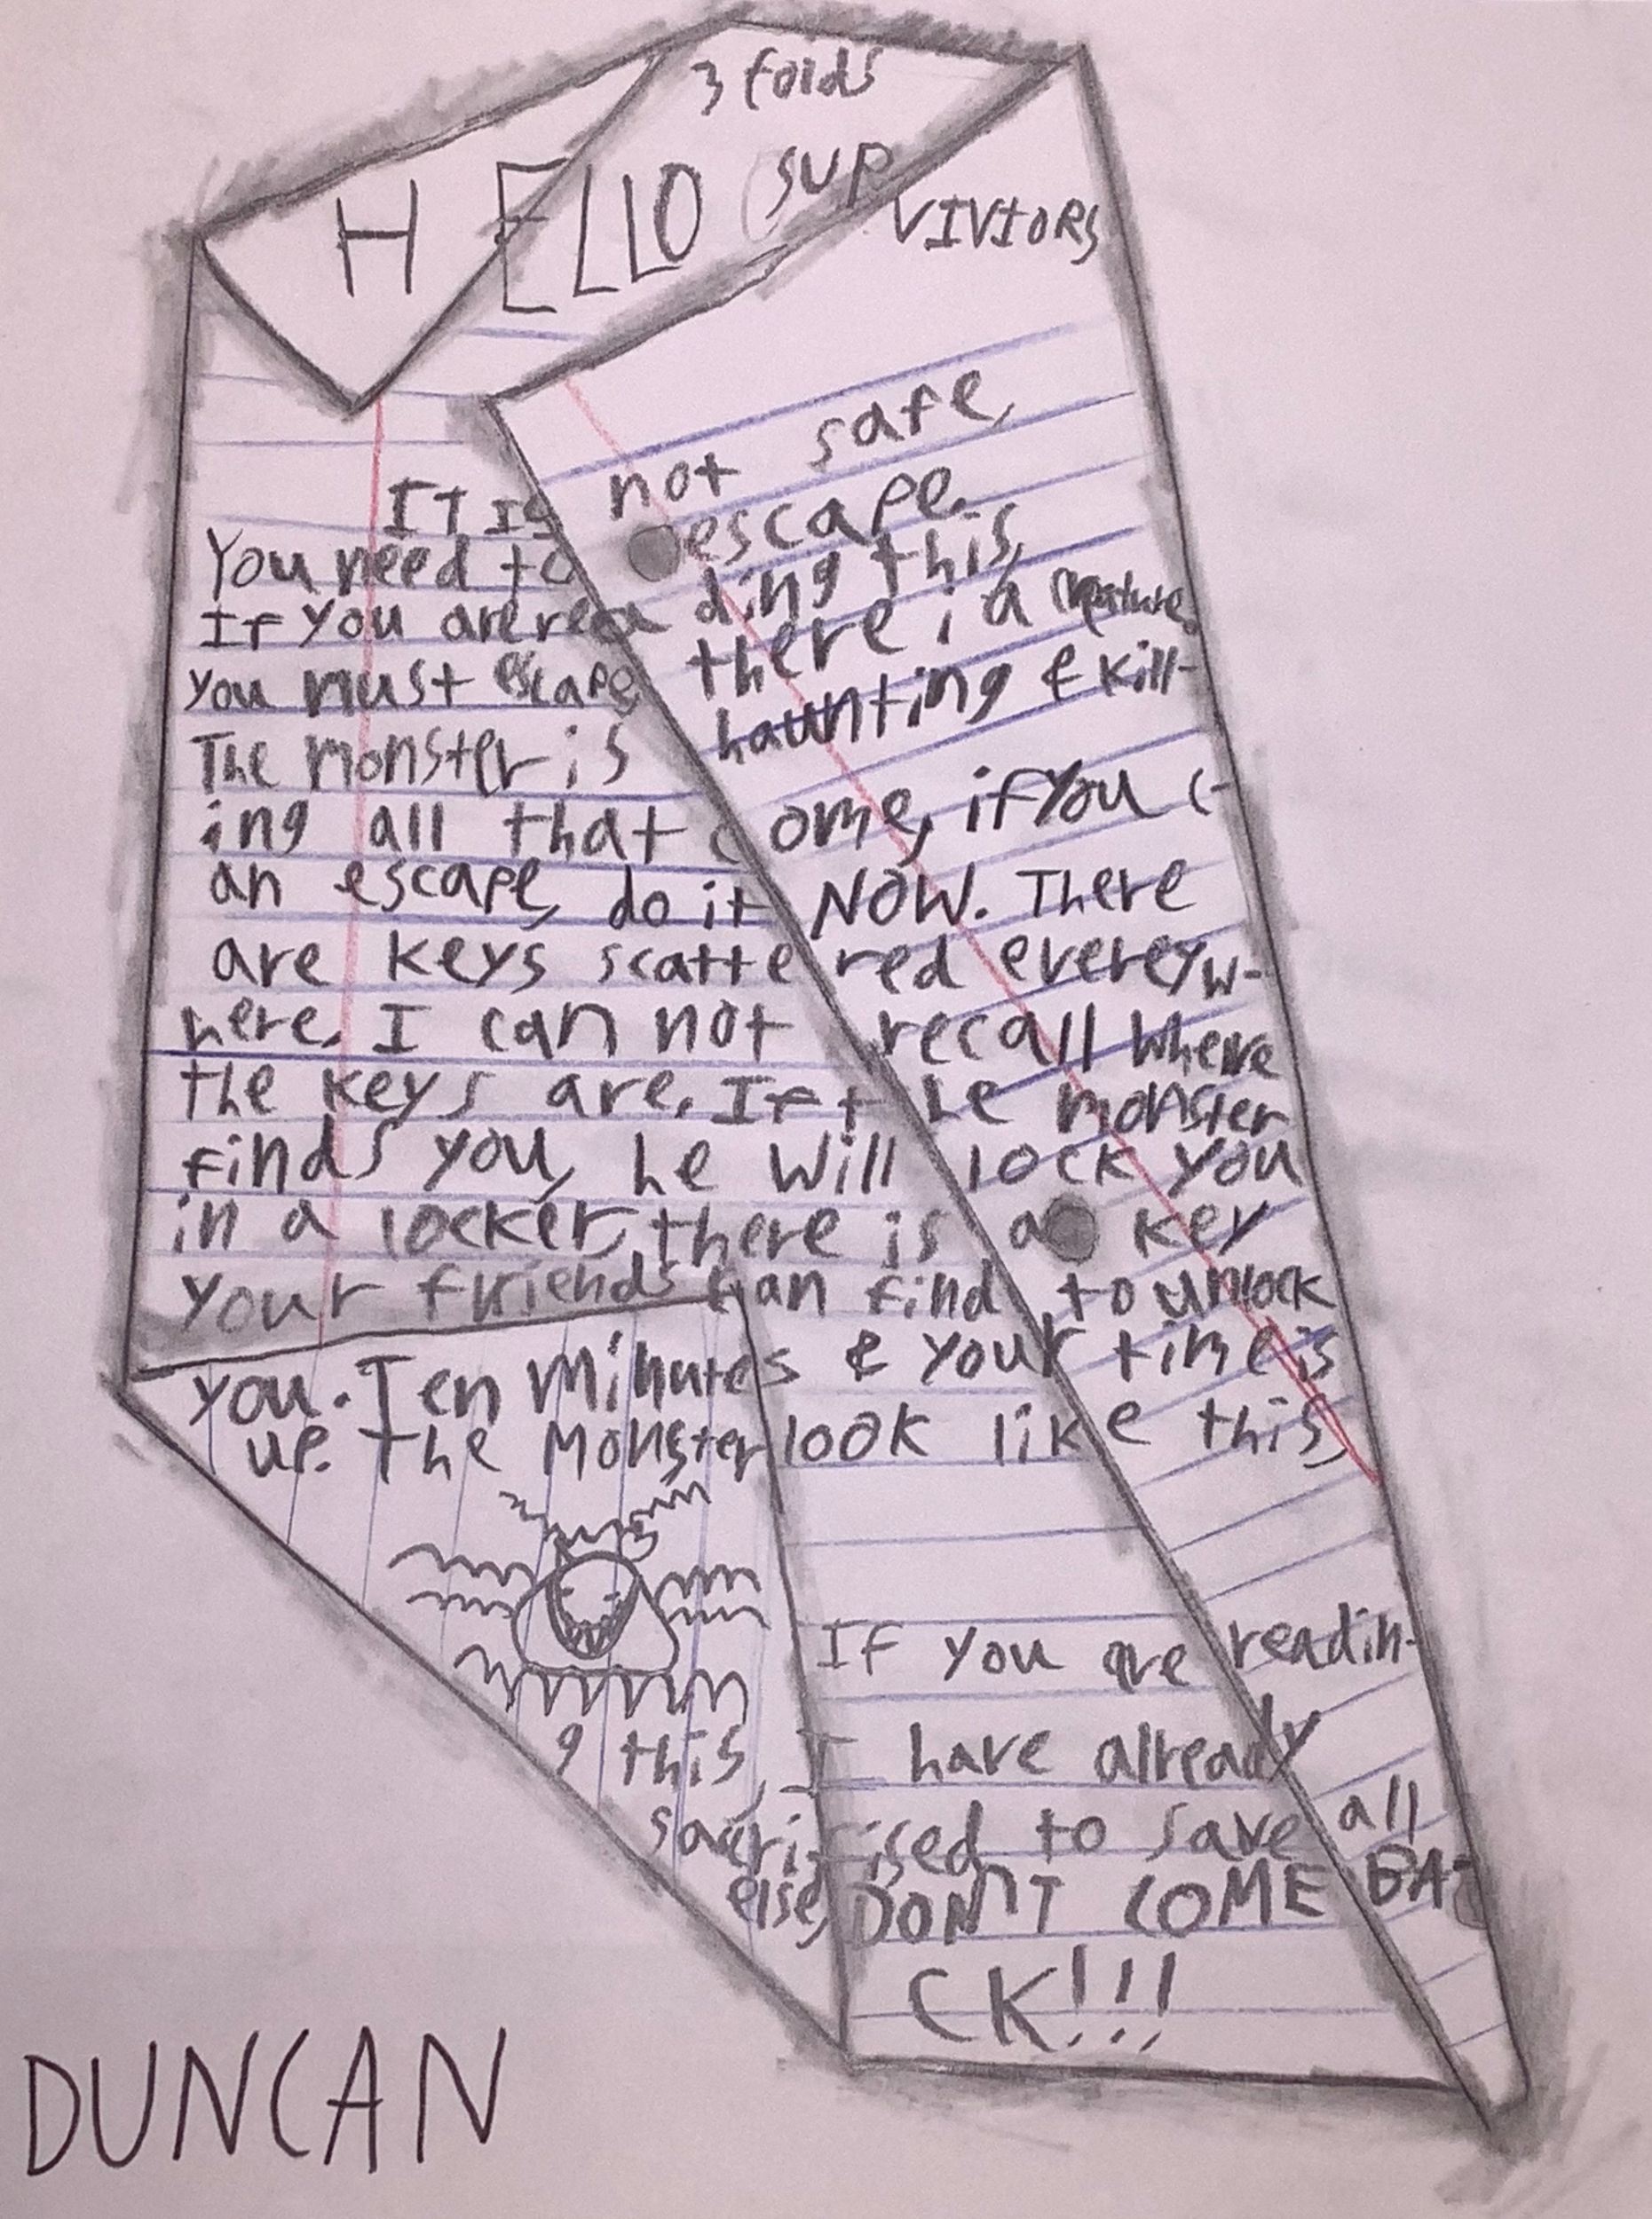 3 folds
HELLO SURVIVIORS
IT IS not safe,
You need to escape.
If you are reading this,
you must escape, there i a creature.
The monster is haunting & kill-
ing all that come, if you c-
an escape, do it NOW. There
are keys scattered evereyw-
here. I can not recall where
the keys are. If the monster
finds you, he will lock you
in a locker, there is a key
your friends can find, to unlock
you. Ten Minutes & your time is
up. The Monster look like this,
If you are readin-
g this, I have already
sacrificed to save all
else, DON'T COME BA-
CK!!!
DUNCAN